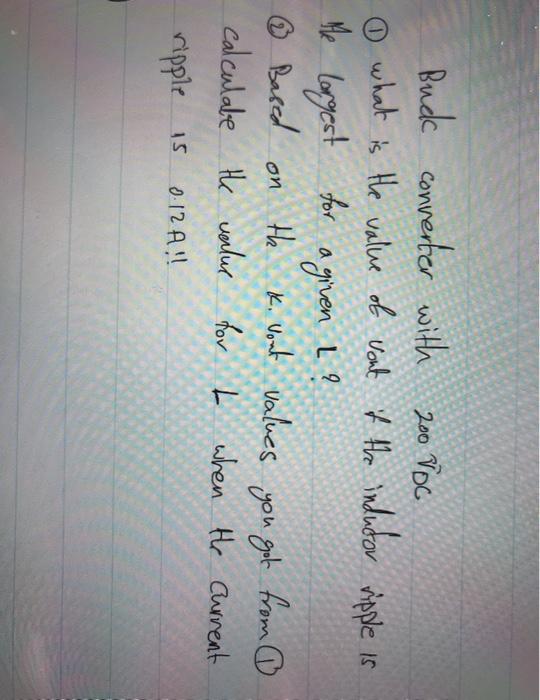 Buck converter with 200 VDC
① what is the value of Vout if the inductor ripple is
the largest for a given L ?
② Based on the K. Vout values you got from ①
calculate the value for L when the current
ripple is 0.12A!!